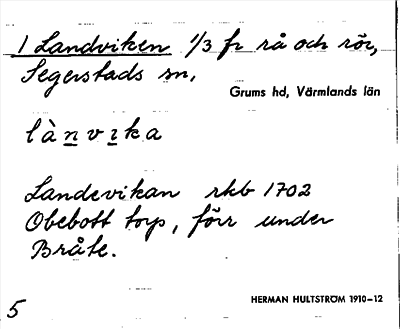 1 Landviken 1/3 fr rå och rör,
Segerstads sn,
Grums hd, Värmlands län
lànvika
Landevikan rkb 1702
Obebott torp, förr under
Bråte.
5
HERMAN HULTSTRÖM 1910-12